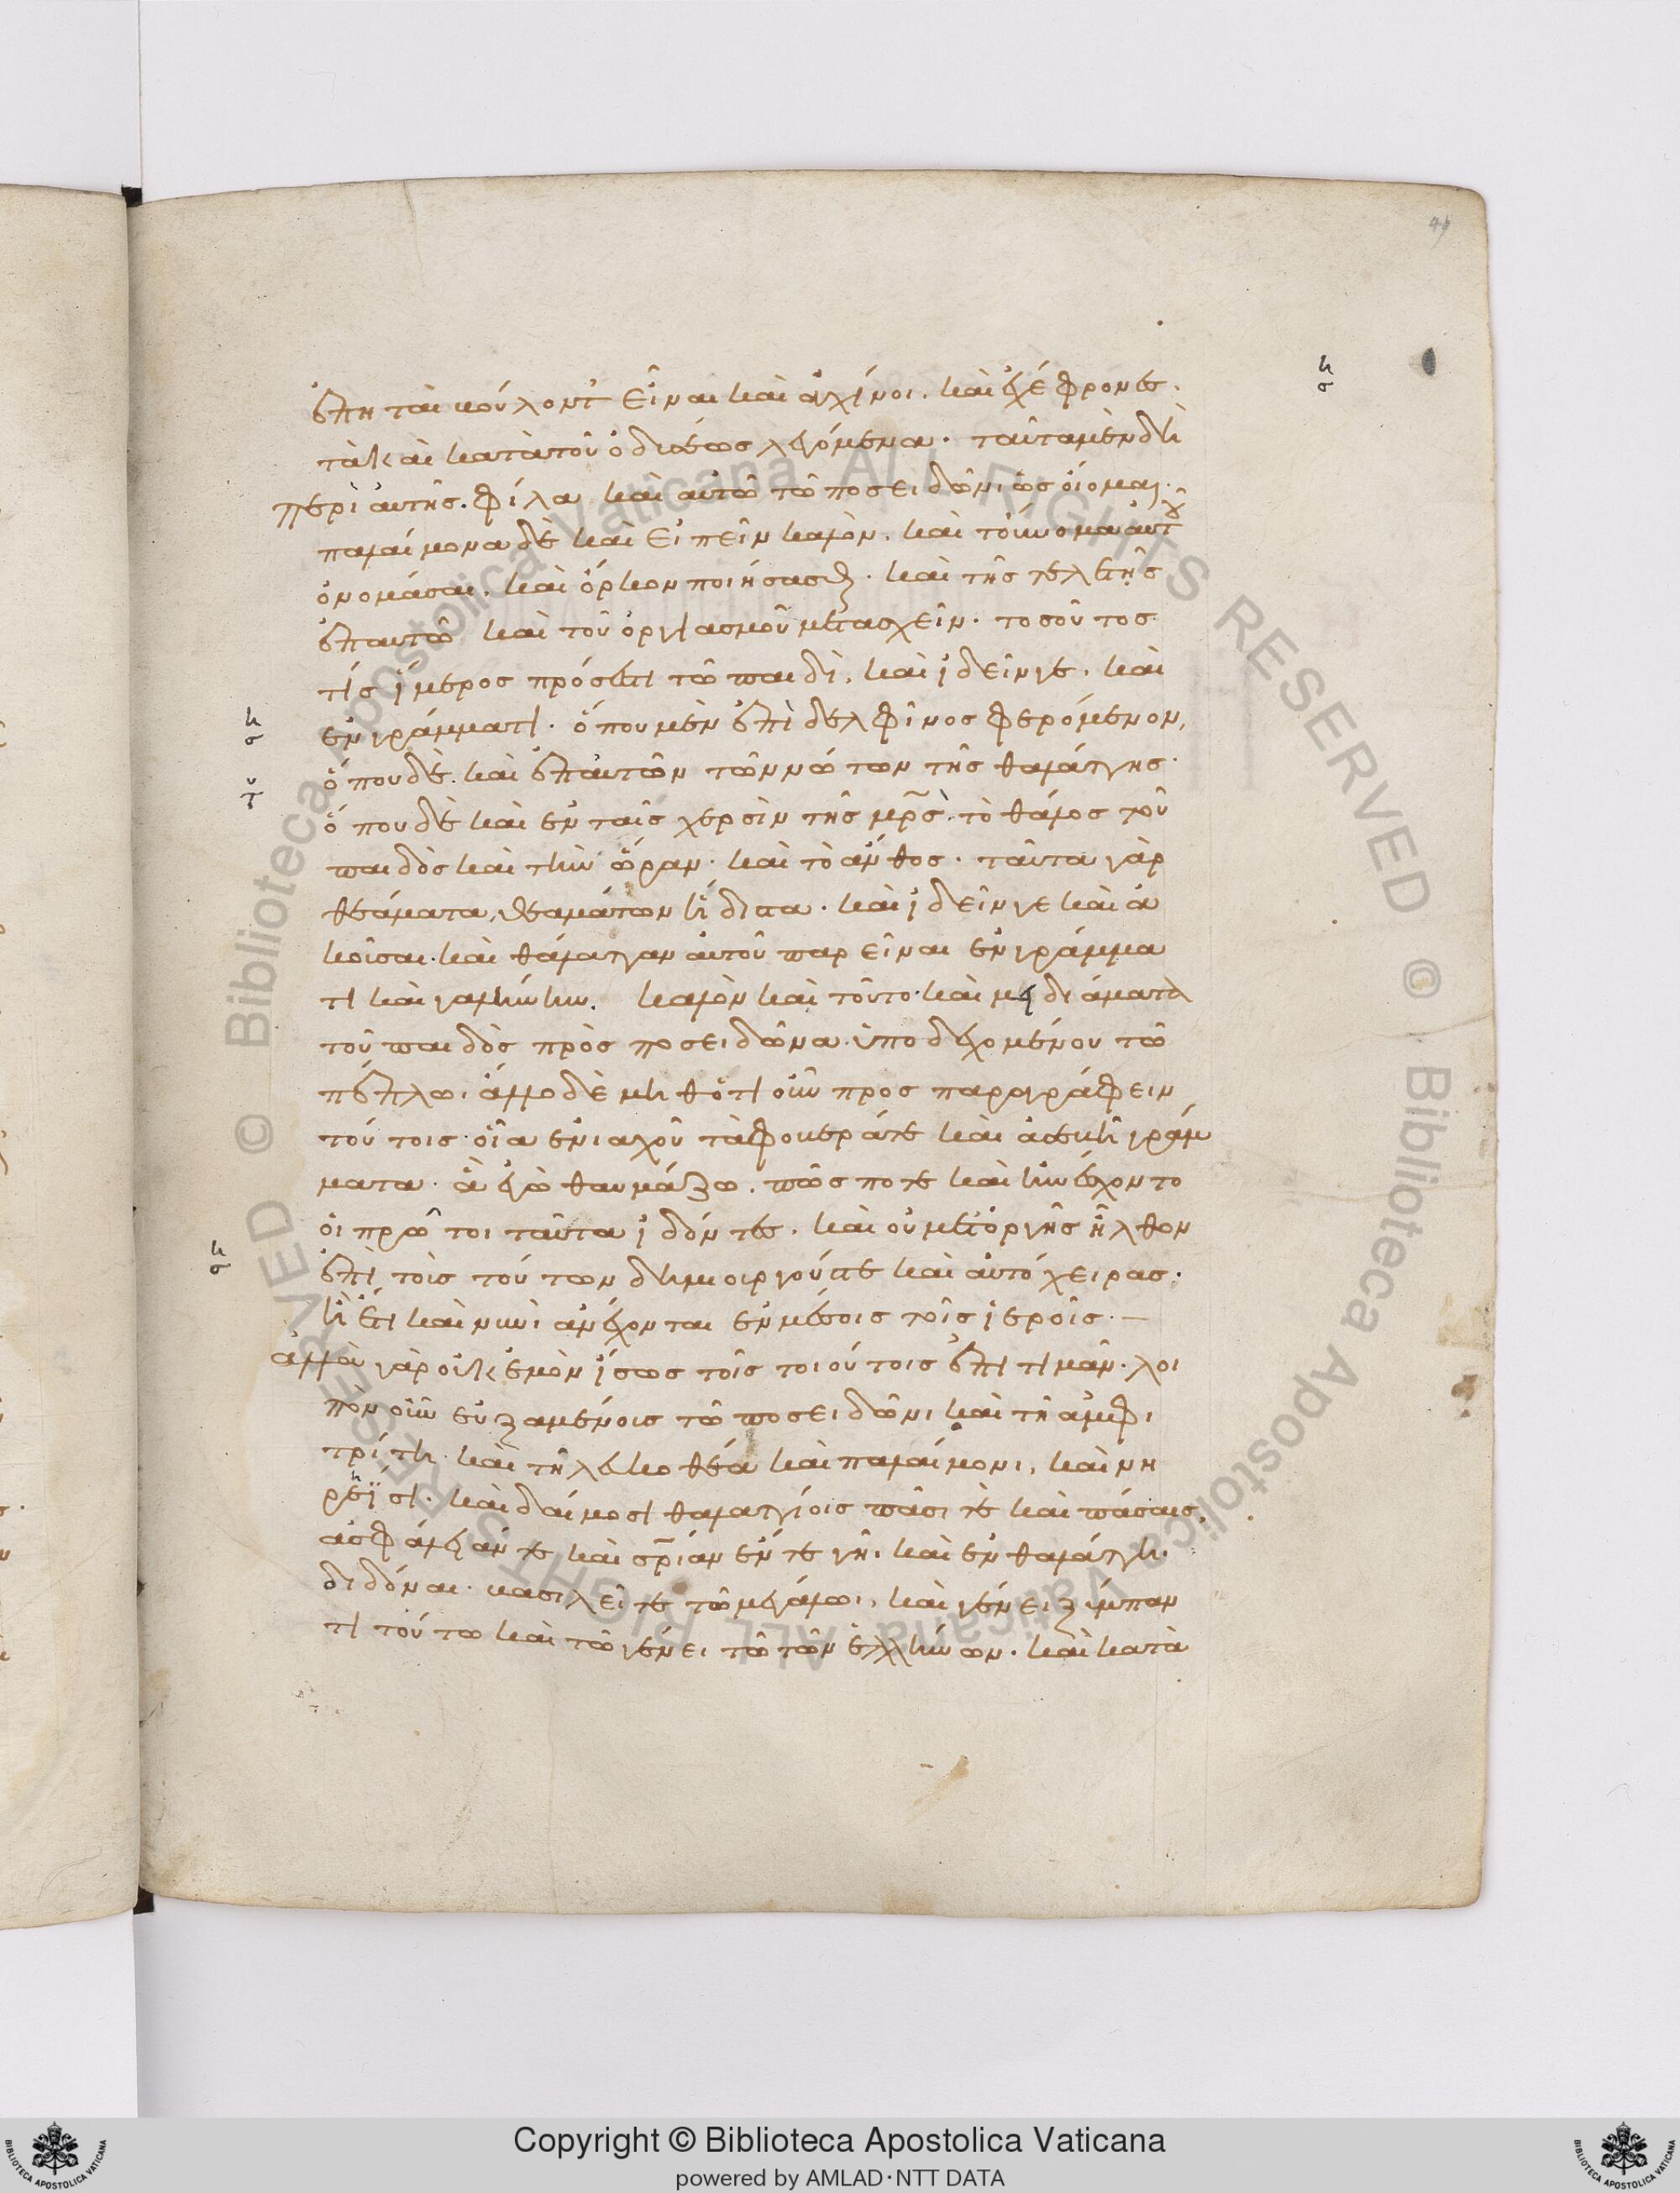 ἐπη ται βούλοντ εἶναι καὶ ἀγχίνοι. καὶ ἐχέφρονες.
τὰ καὶ κατὰ τοῦ ὀδυσσέως λεγόμενα. ταῦτα μὲν δὴ
περὶ αὐτῆς. φίλα καὶ αὐτῶ τῶ ποσειδῶνι ὡς οἴομαι.
παλαίμονα δὲ καὶ εἰπεῖν καλὸν. καὶ τοὔνομα αὐτοῦ
ὀνομάσαι. καὶ ὅρκον ποιήσασθαι. καὶ τῆς τελετῆς
ἐπαυτῶ καὶ τοῦ ὀργιασμοῦ μετασχεῖν. τοσοῦτος
τίς ἵμερος πρόσεστι τῶ παιδὶ. καὶ ἰδεῖν γε. καὶ
ἐν γράμματι. ὅπου μὲν ἐπὶ δελφῖνος φερόμενον,
ὅπου δὲ. καὶ ἐπαυτῶν τῶν νώτων τῆς θαλάττης.
ὅπου δὲ καὶ ἐν ταῖς χερσὶν τῆς μρς. τὸ θάλος τοῦ
παιδὸς καὶ τὴν ὥραν. καὶ τὸ ἄνθος. ταῦτα γὰρ
θεάματα, θεαμάτων ἥδιστα. καὶ ἰδεῖν γε καὶ ἀ
κοῦσαι. καὶ θάλατταν αὐτοῦ παρεῖναι ἐν γράμμα
τι καὶ γαλήνην. καλὸν καὶ τοῦτο. καὶ
τοῦ παιδὸς πρὸς ποσειδῶνα ὑποδεχομένου τῶ
πέπλω. ἄλλο δὲ μὴ θ ὅτι οὖν προσπαραγράφειν
τούτοις οἷα ἐνιαχοῦ τὰ φοβερά τε καὶ ἀσεβῆ γράμ
ματα. ἃ ἐγὼ θαυμάζω. πῶς ποτε καὶ ἠνέσχοντο
οἱ πρῶτοι ταῦτα ἰδόντες. καὶ οὐ μετ ὀργῆς ἦλθον
ἐπὶ τοὶς τούτων δημιουργούς τε καὶ αὐτόχειρας.
ἢ ἔτι καὶ νυνὶ ἀνέχονται ἐν μέσοις τοῖς ἱεροῖς. —
ἀλλὰ γὰρ οὐκ ἐμὸν ἴσως τοῖς τοιούτοις ἐπιτιμᾶν. λοι
πὸν οὖν εὐξαμένοις τῶ ποσειδῶνι καὶ τῆ ἀμφι
τρίτη. καὶ τῆ λευκοθέα καὶ παλαίμονι, καὶ νη
ρηΐσι. καὶ δαίμοσι θαλαττίοις πᾶσι τε καὶ πάσαις.
ἀσφάλειάν τε καὶ σρίαν ἔν τε γῆ. καὶ ἐν θαλάττη.
διδόναι. βασιλεῖ τε τῶ μεγάλωι, καὶ γένει ξύμπαν
τι τούτω καὶ τῶ γένει τῶ τῶν ἑλλήνων. καὶ κατὰ
Copyright © Biblioteca Apostolica Vaticana
powered by AMLAD·NTT DATA